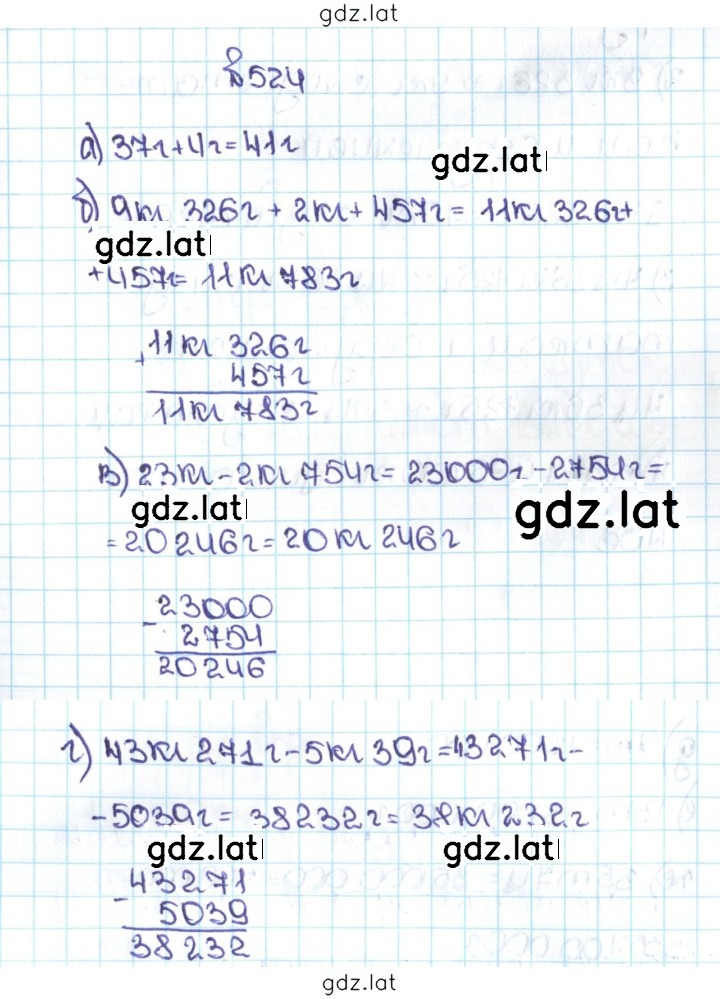 gdz.lat
№524
а) 37г+4г=41г
gdz.lat
б) 9кг 326г + 2кг + 457г = 11кг 326г+
gdz.lat
+457г= 11кг 783г
+ 11кг 326г
457г
11кг 783г
в) 23кг-2кг 754г= 23000г-2754г=
gdz.lat gdz.lat
=20246г=20кг 246г
- 23000
2754
20246
г) 43кг 271г-5кг 39г=43271г-
-5039г= 38232г= 38кг 232г
gdz.lat gdz.lat
- 43271
5039
38232
gdz.lat